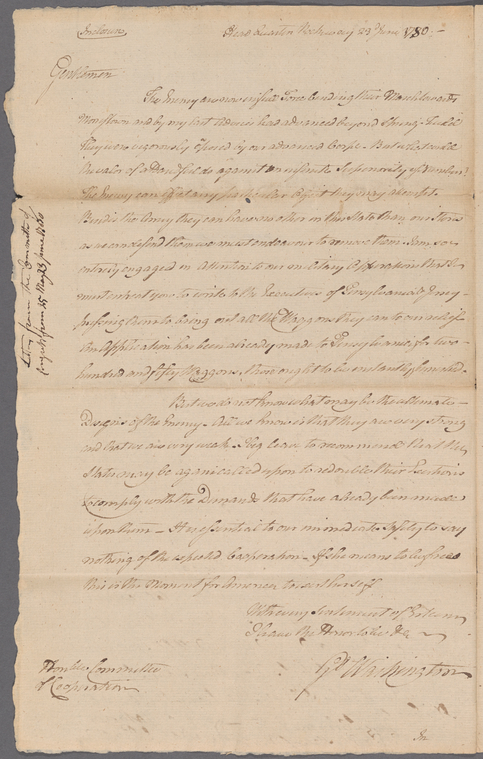 Inclosure
Head Quarters Rockaway 23d June 1780.
Gentlemen
The Enemy are now in full Force bending their March towards
Morristown and by my last advices had advanced beyond Springfield
They were vigorously opposed by our advanced Corps. But what can the
the valor of a Handful do against an infinite Superiority of Numbers?
The Enemy can effect any particular object they may attempt.
Besides the Army they can have no other in this State than our Stores
as we can defend them we must endeavor to remove them. I am so
entirely engaged in Attention to our military Opperations that I
must intreat you to write to the Executives of Pensylvania & Jersey
pressing them to bring out all the Waggons they can to our relief
An Application has been already made to Pensylvania for two
hundred and fifty Waggons, these ought to be instantly furnished.
But we do not know what may be the ultimate
Designs of the Enemy. All we know is that they are very strong
and that we are very weak. I beg leave to recommend that the
States may be again called upon to redouble their Exertions
to comply with the Demands that have already been made
upon them — It is essential to our immediate safety to say
nothing of the expected Cooperation — If she means to be free
this is the Moment for America to exert herself
With every Sentiment of Esteem
I have the Honor to be &c
Go Washington
Honble Committee
of Cooperation
In
Letters from the Committee of
Congress from 25 May 23 June 1780